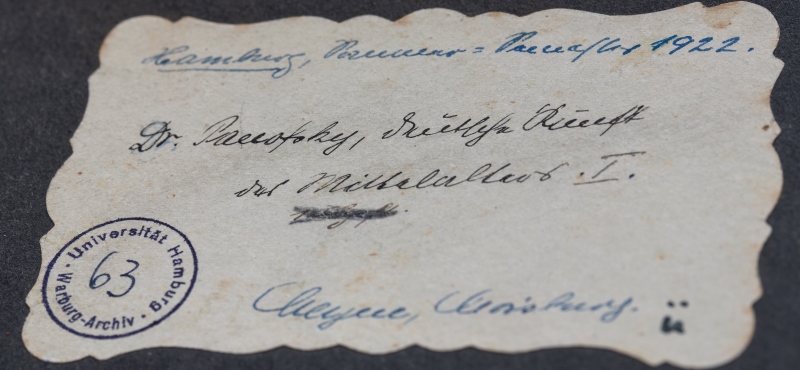 Hamburg, Sommer=Semester 1922.
Dr. Panofsky, deutsche Kunst
des Mittelalters. I.
Universität Hamburg
63
Warburg-Archiv
ü